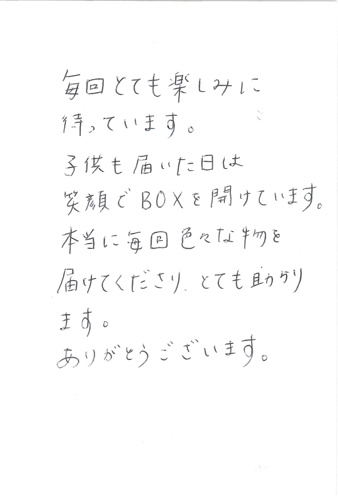 毎回とても楽しみに
待っています。
子供も届いた日は
笑顔でBOXを開けています。
本当に毎回色々な物を
届けてくださり、とても助かり
ます。
ありがとうございます。